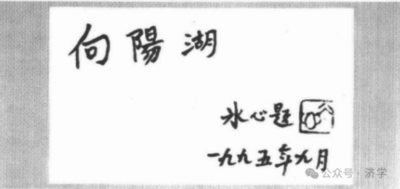 向陽湖
冰心題
一九九五年九月
公众号·济学